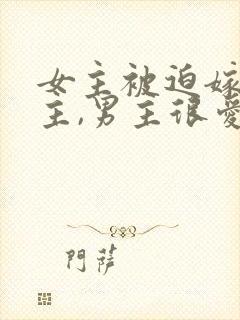 女主被迫嫁
主,男主很爱
門薩